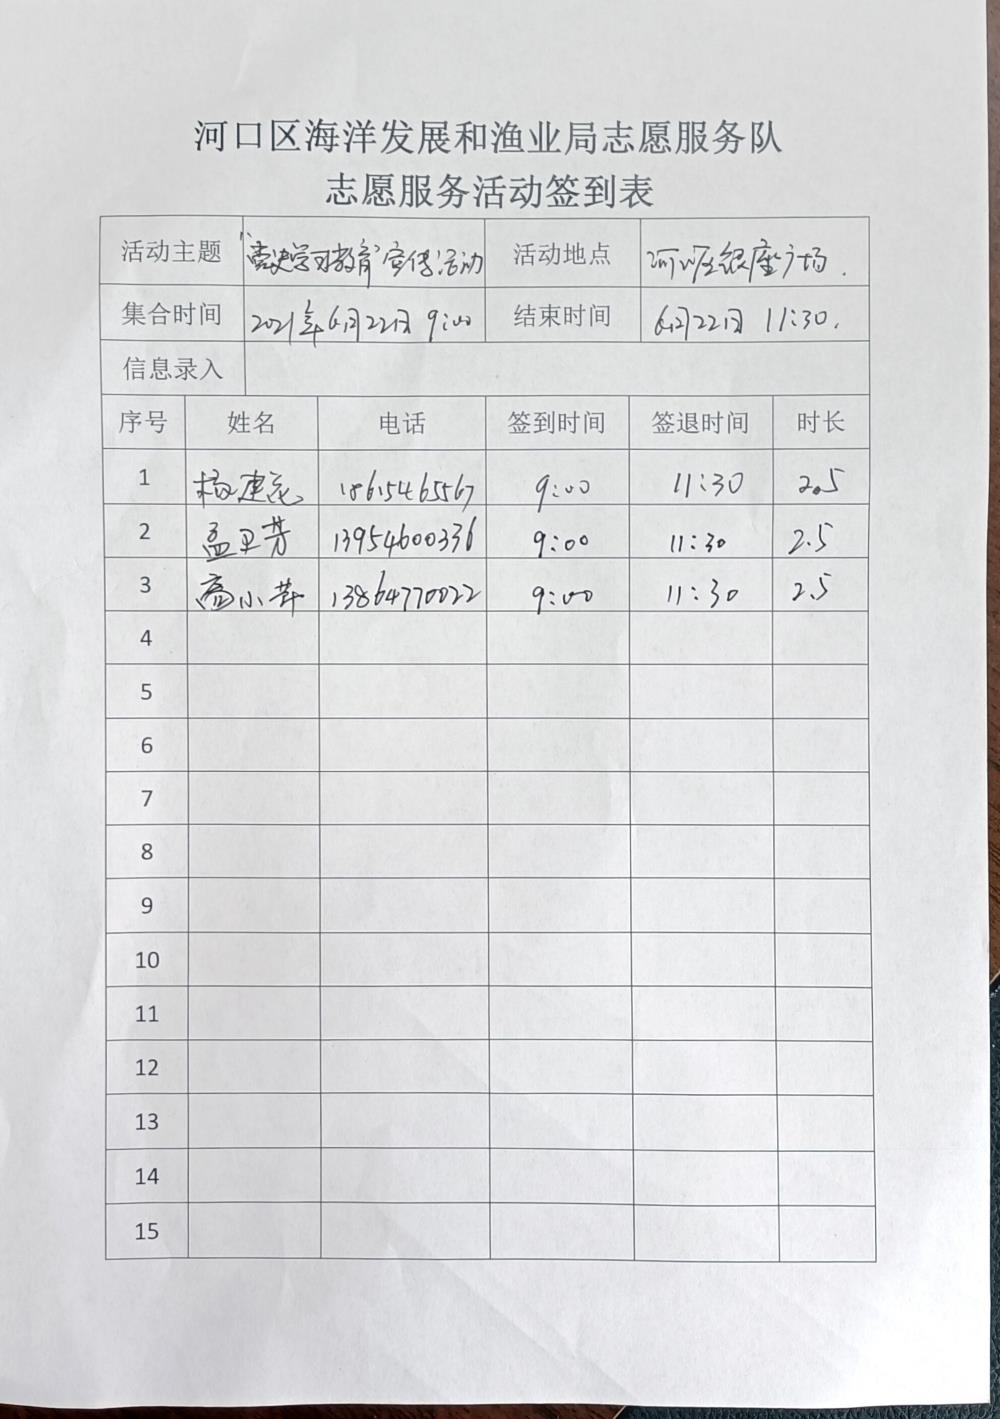 河口区海洋发展和渔业局志愿服务队
志愿服务活动签到表
活动主题 "党史学习教育"宣传活动 活动地点 河口区银座广场.
集合时间 2021年6月22日 9:00 结束时间 6月22日 11:30.
信息录入
序号 姓名 电话 签到时间 签退时间 时长
1 杨建 18615465567 9:00 11:30 2.5
2 孟卫芳 13954600336 9:00 11:30 2.5
3 高小 13864770022 9:00 11:30 2.5
4
5
6
7
8
9
10
11
12
13
14
15